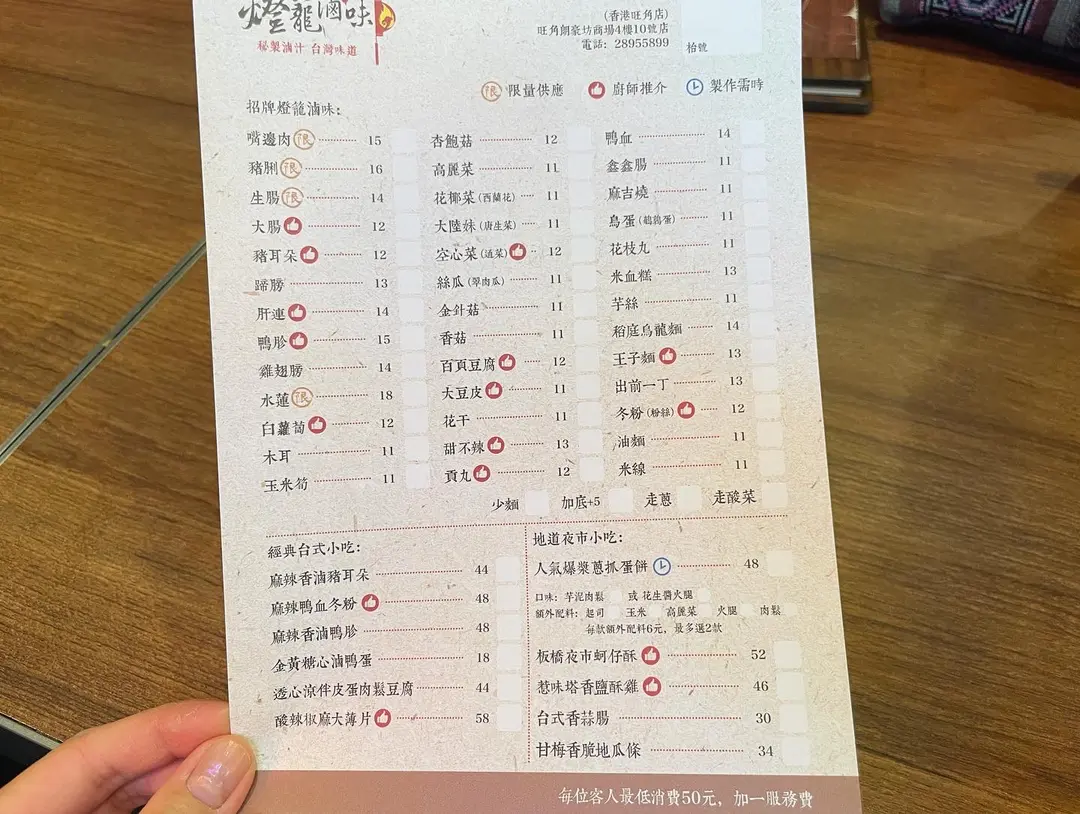 燈籠滷味
秘製滷汁 台灣味道
(香港旺角店)
旺角朗豪坊商場4樓10號店
電話: 28955899
枱號
限 限量供應 廚師推介 製作需時
招牌燈籠滷味:
嘴邊肉 限 15
豬脷 限 16
生腸 限 14
大腸 12
豬耳朵 12
蹄膀 13
肝連 14
鴨胗 15
雞翅膀 14
水蓮 限 18
白蘿蔔 12
木耳 11
玉米筍 11
杏鮑菇 12
高麗菜 11
花椰菜(西蘭花) 11
大陸妹(唐生菜) 11
空心菜(通菜) 12
絲瓜(翠肉瓜) 11
金針菇 11
香菇 11
百頁豆腐 12
大豆皮 11
花干 11
甜不辣 13
貢丸 12
鴨血 14
鑫鑫腸 11
麻吉燒 11
鳥蛋(鵪鶉蛋) 11
花枝丸 11
米血糕 13
芋絲 11
稻庭烏龍麵 14
王子麵 13
出前一丁 13
冬粉(粉絲) 12
油麵 11
米線 11
少麵 加底+5 走蔥 走酸菜
經典台式小吃:
麻辣香滷豬耳朵 44
麻辣鴨血冬粉 48
麻辣香滷鴨胗 48
金黃糖心滷鴨蛋 18
透心涼伴皮蛋肉鬆豆腐 44
酸辣椒麻大薄片 58
地道夜市小吃:
人氣爆漿蔥抓蛋餅 48
口味: 芋泥肉鬆 或 花生醬火腿
額外配料: 起司 玉米 高麗菜 火腿 肉鬆
每款額外配料6元，最多選2款
板橋夜市蚵仔酥 52
惹味塔香鹽酥雞 46
台式香蒜腸 30
甘梅香脆地瓜條 34
每位客人最低消費50元，加一服務費